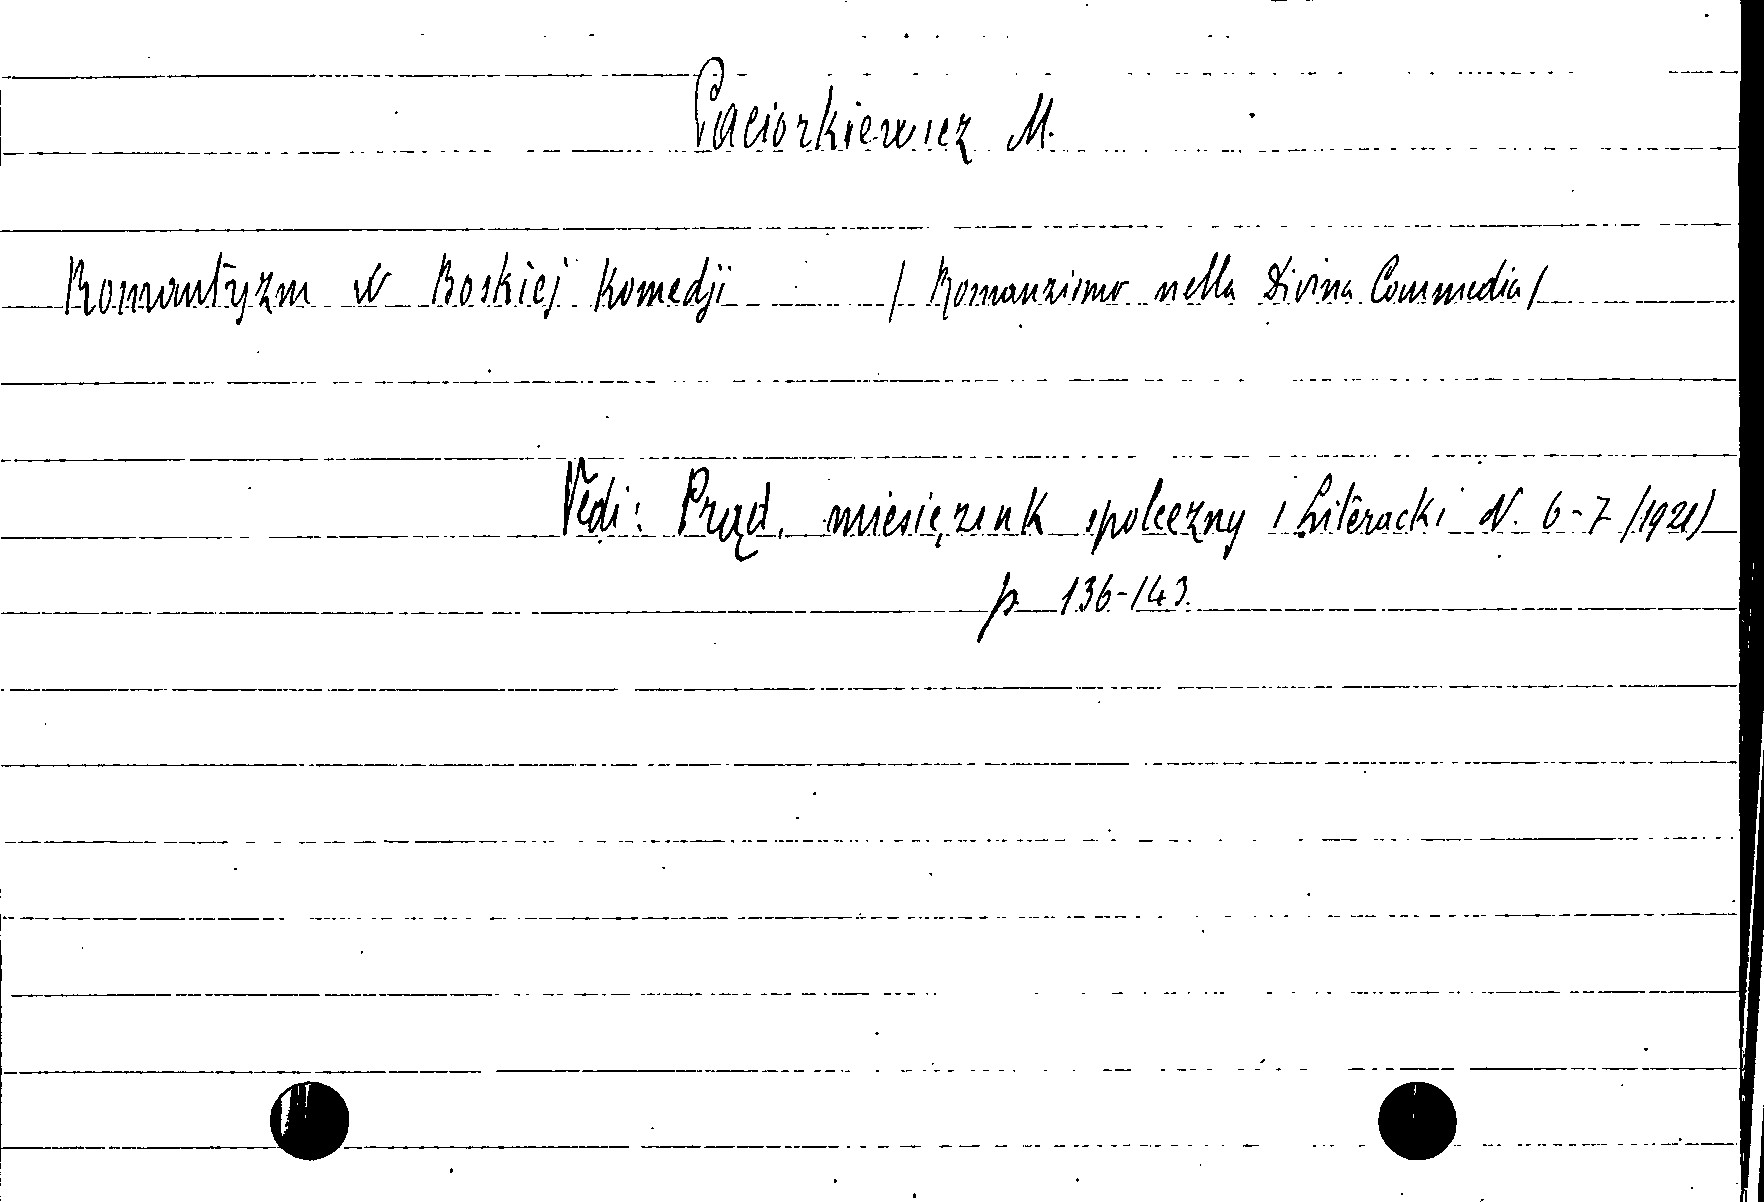 Paciorkiewicz M.
Romantyzm w Boskiej Komedji / Romanzismo nella Divina Commedia /
Vedi: Prąd, miesięcznk spoleczny i Literacki N. 6-7 /1921/
p. 136-143.